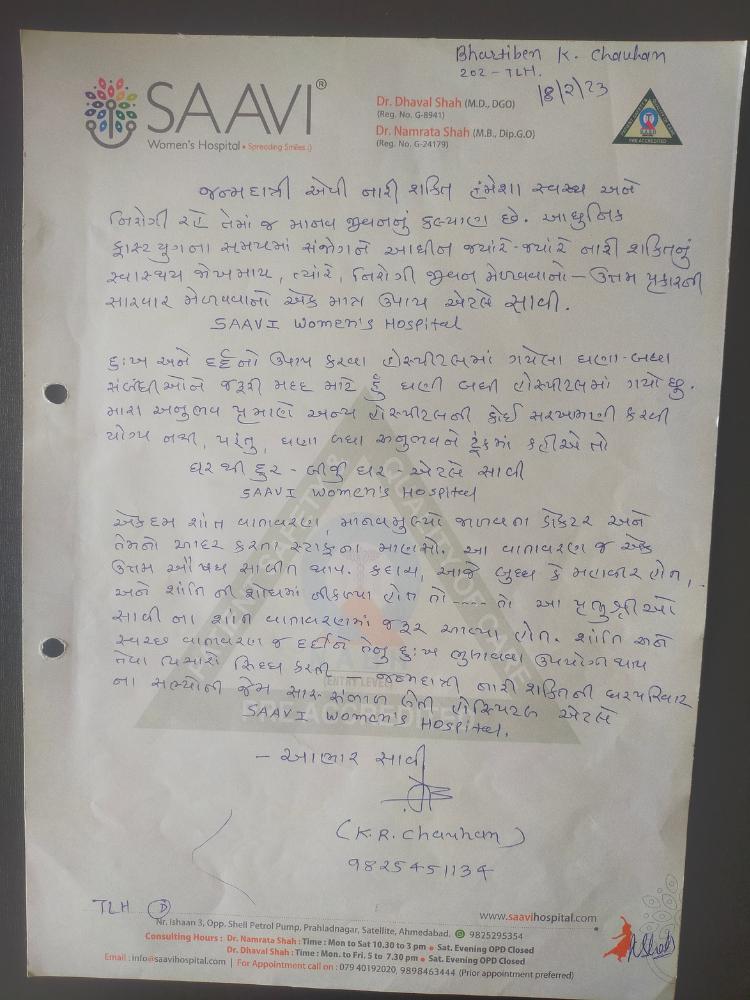 Bhartiben K. Chauhan
202 - TLH.
18/2/23
SAAVI®
Women's Hospital • Spreading Smiles :)
Dr. Dhaval Shah (M.D., DGO)
(Reg. No. G-8941)
Dr. Namrata Shah (M.B., Dip.G.O)
(Reg. No. G-24179)
જન્મદાત્રી એવી નારી શકિત હંમેશા સ્વસ્થ અને
નિરોગી રહે તેમાં જ માનવ જીવનનું કલ્યાણ છે. આધુનિક
ફાસ્ટયુગના સમયમાં સંજોગને આધીન જ્યારે-જ્યારે નારી શકિતનું
સ્વાસ્થય જોખમાય, ત્યારે, નિરોગી જીવન મેળવવાનો - ઉત્તમ પ્રકારની
સારવાર મેળવવાનો એક માત્ર ઉપાય એટલે સાવી.
SAAVI Women's Hospital
દુઃખ અને દર્દનો ઉપાય કરવા હોસ્પીટલમાં ગયેલા ઘણા-બધા
સંબંધીઓને જરૂરી મદદ માટે હું ઘણી બધી હોસ્પીટલમાં ગયો છું.
મારા અનુભવ પ્રમાણે અન્ય હોસ્પીટલની કોઈ સરખામણી કરવી
યોગ્ય નથી, પરંતુ, ઘણા બધા અનુભવને ટૂંકમાં કહીએ તો
ઘર થી દુર - બીજુ ઘર - એટલે સાવી
SAAVI Women's Hospital
એકદમ શાંત વાતાવરણ, માનવમુલ્યો જાળવતા ડોકટર અને
તેમનો આદર કરતા સ્ટાફના માણસો. આ વાતાવરણ જ એક
ઉત્તમ ઔષધ સાબીત થાય. કદાચ, આજે બુધ્ધ કે મહાવીર હોત,
અને શાંતિ ની શોધમાં નીકળ્યા હોત તો ---- તો આ પ્રભુશ્રીઓ
સાવી ના શાંત વાતાવરણમાં જરૂર આવ્યા હોત. શાંતિ અને
સ્વચ્છ વાતાવરણ જ દર્દીને તેનુ દુઃખ ભુલાવવા ઉપયોગી થાય
તેવા સિધ્ધ કરતી - જન્મદાત્રી નારી શકિતની ઘરપરિવાર
ના સભ્યોની જેમ સારુ સંભાળ લેતી હોસ્પિટલ એટલે
SAAVI Women's Hospital.
- આભાર સાવી
(K.R. Chauhan)
9825451134
TLH
www.saavihospital.com
Nr. Ishaan 3, Opp. Shell Petrol Pump, Prahladnagar, Satellite, Ahmedabad. 9825295354
Consulting Hours : Dr. Namrata Shah : Time : Mon to Sat 10.30 to 3 pm • Sat. Evening OPD Closed
Dr. Dhaval Shah : Time : Mon. to Fri. 5 to 7.30 pm • Sat. Evening OPD Closed
Email : info@saavihospital.com | For Appointment call on : 079 40192020, 9898463444 (Prior appointment preferred)